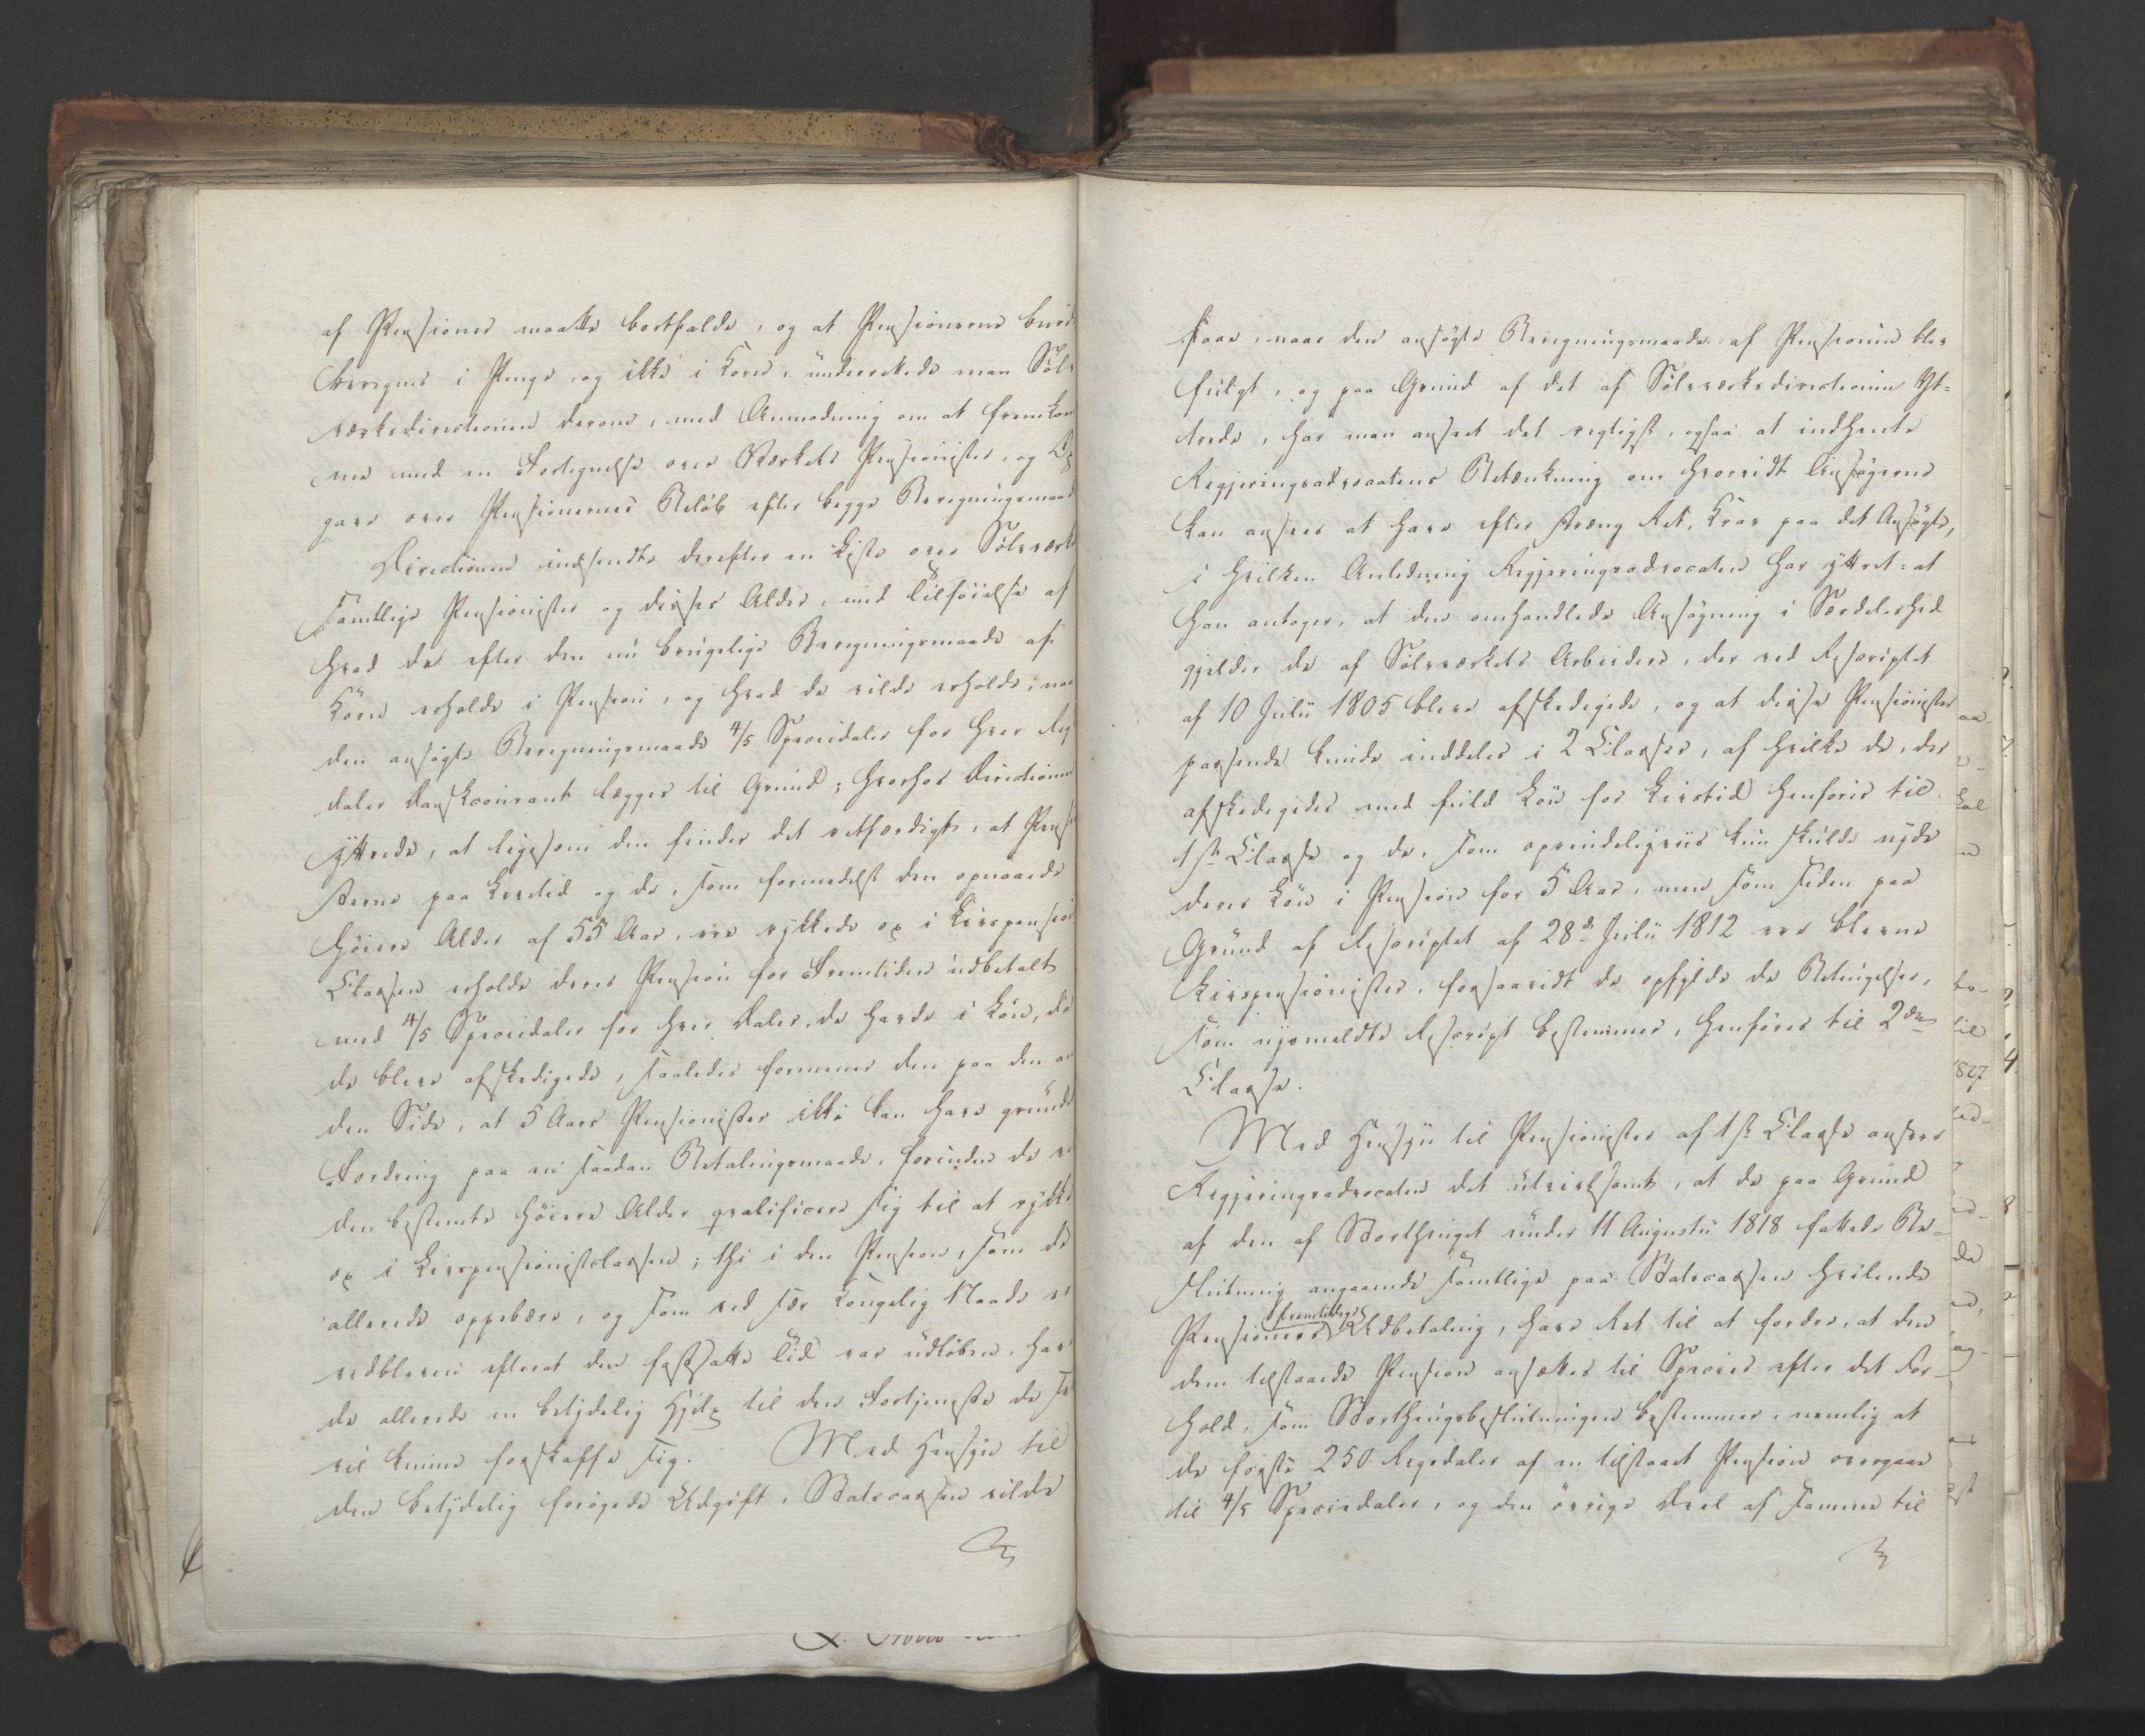 af Pensioner maatte bortfalde, og at Pensionerne burde
beregnes i Penge og ikke i Korn, underrettede man Sølv
værksdirectionen derom, med Anmodning om at fremkom
me med en Fortegnelse over Værkets Pensionister, og Op
gave over Pensionernes Beløb efter begge Beregningsmaad
Directionen indsendte derefter en Liste over Sølvværk
samtlige Pensionister og disses Alder, med Tilføielse af
hvad de efter den nu brugelige Beregningsmaade af
Korn erholde i Pension, og hvad de vilde erholde, naar
den ansøgte Beregningsmaade 4/5 Speciedaler for hver Rigs
daler danskcourant lægges til Grund; hvorhos Directionen
yttrede, at ligesom den finder det retfærdigt, at Pensi
sterne paa Livstid og de, som formedelst den opnaaede
høiere Alder af 55 Aar, ere rykkede op i Livspension
Classen erholde deres Pension for Fremtiden udbetalt
med 4/5 Speciedaler for hver Daler, de havde i Løn, da
de bleve afskedigede, saaledes formener den paa den an
den Side, at 5 Aars Pensionister ikke kan have grundet
Fordring paa en saadan Betalingsmaade, forinden de ved
den bestemte høiere Alder qvalificere sig til at rykke
op i Livspensionistclassen; thi i den Pension, som de
allerede oppebære, og som ved sær kongelig Naade er
vedbleven efterat den fastsatte Tid var udløben, have
de allerede en betydelig Hjelp til den Fortjeneste de selv
vil kunne forskaffe sig. Med Hensyn til
den betydelig forøgede Udgift, Statscassen vilde
faae, naar den ansøgte Beregningsmaade af Pensionen blev
fulgt, og paa Grund af det af Sølvværksdirectionen Yt-
trede, har man anseet det rigtigst, ogsaa at indhente
Regjeringsadvocatens Betænkning om hvorvidt Ansøgerne
kan ansees at have efter stræng Ret, Krav paa det Ansøgte,
i hvilken Anledning Regjeringsadvocaten har yttret: at
han antager, at den omhandlede Ansøgning i Særdeleshed
gjelder de af Sølvværkets Arbeidere, der ved Rescriptet
af 10 Julii 1805 bleve afskedigede, og at disse Pensionister
passende kunde inddeles i 2 Classer, af hvilke de, der
afskedigedes med fuld Løn for Livstid henføres til
1ste Classe og de, som oprindeligviis kun skulde nyde
deres Løn i Pension for 5 Aar, men som siden paa
Grund af Rescriptet af 28de Julii 1812 ere blevne
Livspensionister, forsaavidt de opfylde de Betingelser,
som nysmeldte Rescript bestemmer, henføres til 2den
Classe.
Med Hensyn til Pensionister af 1ste Classe ansees
Regjeringsadvocaten det utvivlsomt, at de paa Grund
af den af Storthinget under 11 Augustii 1818 fattede Be-
slutning angaaende samtlige paa Statscassen hvilende
Pensioners fremtidige Udbetaling, have Ret til at fordre, at den
dem tilstaaede Pension ansættes til Species efter det For-
hold, som Storthingsbeslutningen bestemmer, nemlig at
de første 250 Rigsdaler af en tilstaaet Pension overgaae
til 4/5 Speciedaler, og den øvrige Deel af samme til